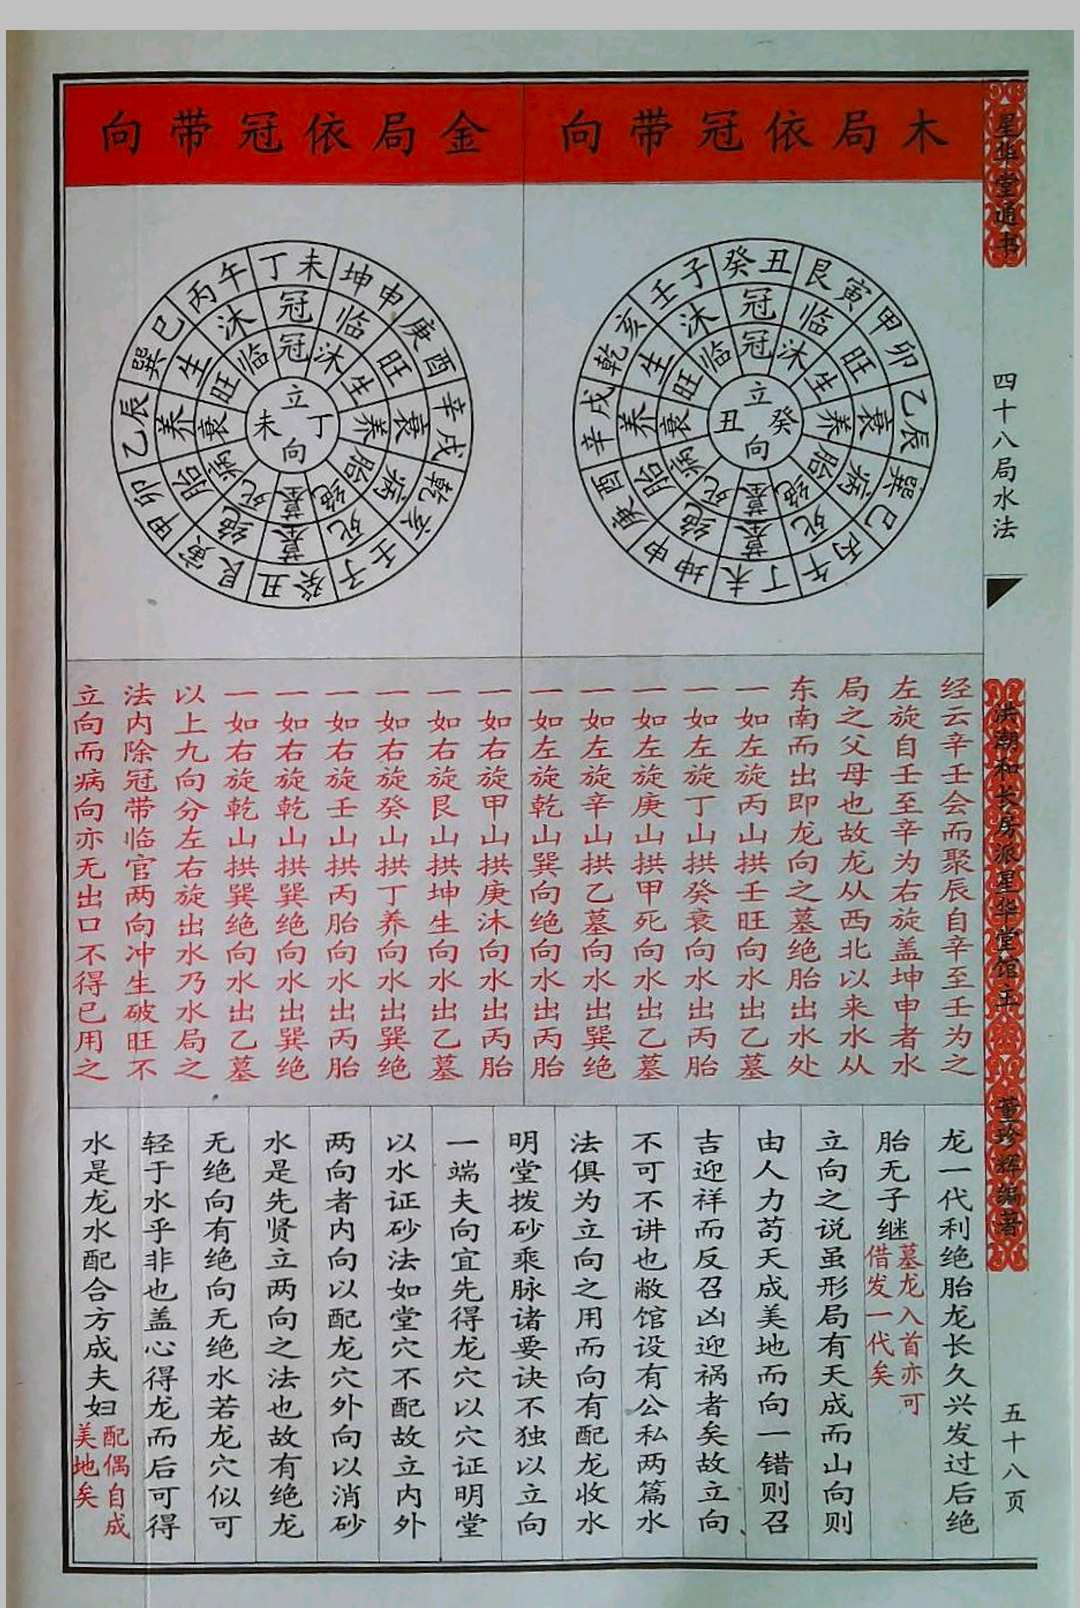 星华堂通书
四十八局水法
洪潮和长房派星华堂馆主
董珍辉编著
五十八页
木局依冠带向
癸丑 艮寅 甲卯 乙辰 巽巳 丙午 丁未 坤申 庚酉 辛戌 乾亥 壬子
冠 临 旺 衰 病 死 墓 绝 胎 养 生 沐
冠 沐 生 养 胎 绝 墓 死 病 衰 旺 临
立 癸 向 丑
金局依冠带向
丁未 坤申 庚酉 辛戌 乾亥 壬子 癸丑 艮寅 甲卯 乙辰 巽巳 丙午
冠 临 旺 衰 病 死 墓 绝 胎 养 生 沐
冠 沐 生 养 胎 绝 墓 死 病 衰 旺 临
立 丁 向 未
经云辛壬会而聚辰自辛至壬为之
左旋自壬至辛为右旋盖坤申者水
局之父母也故龙从西北以来水从
东南而出即龙向之墓绝胎出水处
一如左旋丙山拱壬旺向水出乙墓
一如左旋丁山拱癸衰向水出丙胎
一如左旋庚山拱甲死向水出乙墓
一如左旋辛山拱乙墓向水出巽绝
一如左旋乾山巽向绝向水出丙胎
一如右旋甲山拱庚沐向水出丙胎
一如右旋艮山拱坤生向水出乙墓
一如右旋癸山拱丁养向水出巽绝
一如右旋壬山拱丙胎向水出丙胎
一如右旋乾山拱巽绝向水出巽绝
一如右旋乾山拱巽绝向水出乙墓
以上九向分左右旋出水乃水局之
法内除冠带临官两向冲生破旺不
立向而病向亦无出口不得已用之
龙一代利绝胎龙长久兴发过后绝
胎无子继墓龙入首亦可借发一代矣
立向之说虽形局有天成而山向则
由人力苟天成美地而向一错则召
吉迎祥而反召凶迎祸者矣故立向
不可不讲也敝馆设有公私两篇水
法俱为立向之用而向有配龙收水
明堂拨砂乘脉诸要诀不独以立向
一端夫向宜先得龙穴以穴证明堂
以水证砂法如堂穴不配故立内外
两向者内向以配龙穴外向以消砂
水是先贤立两向之法也故有绝龙
无绝向有绝向无绝水若龙穴似可
轻于水乎非也盖心得龙而后可得
水是龙水配合方成夫妇配偶自成美地矣